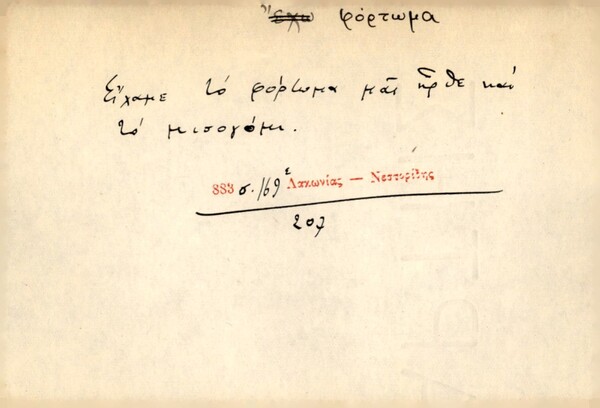 Ἔχω φόρτωμα
Εἴχαμε τό φόρτωμα μᾶς ἦρθε καί
τό μισογόμι.
883 σ. 169 Λακωνίας — Νεστορίδης
207